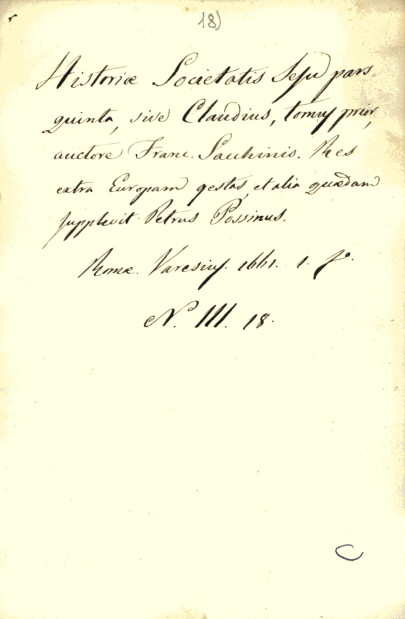 18)
Historiæ Societatis Jesu pars
quinta, sive Claudius, tomus prior,
auctore Franc. Sacchinio. Res
extra Europam gestas, et alia quædam
supplevit Petrus Possinus.
Romæ. Varesius. 1661. 1. fo.
N. III. 18.
C